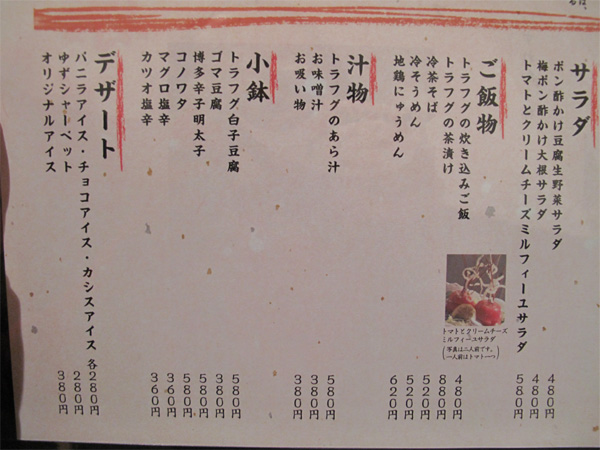 サラダ
ポン酢かけ豆腐生野菜サラダ 480円
梅ポン酢かけ大根サラダ 480円
トマトとクリームチーズミルフィーユサラダ 580円
トマトとクリームチーズ
ミルフィーユサラダ
(写真は二人前です。
一人前はトマト一つ)
ご飯物
トラフグの炊き込みご飯 480円
トラフグの茶漬け 880円
冷茶そば 520円
冷そうめん 520円
地鶏にゅうめん 620円
汁物
トラフグのあら汁 580円
お味噌汁 380円
お吸い物 380円
小鉢
トラフグ白子豆腐 580円
ゴマ豆腐 380円
博多辛子明太子 580円
コノワタ 580円
マグロ塩辛 360円
カツオ塩辛 360円
デザート
バニラアイス・チョコアイス・カシスアイス 各280円
ゆずシャーベット 280円
オリジナルアイス 380円